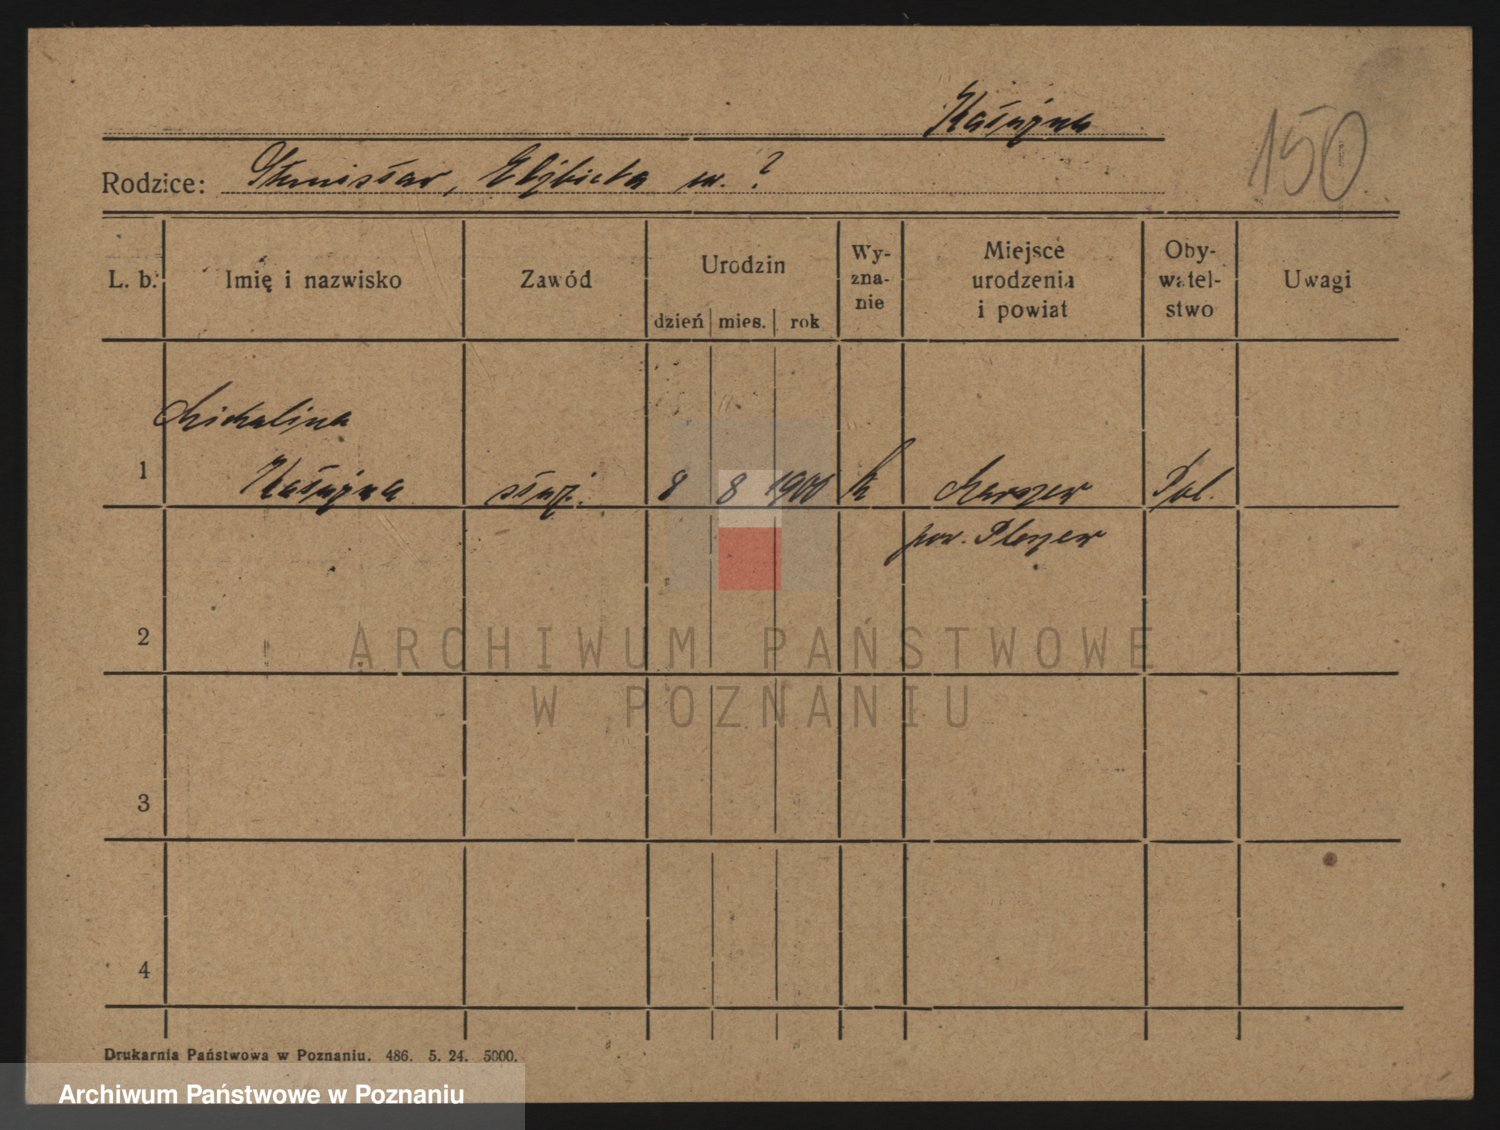 Kałużna
150
Rodzice: Stanisław, Elżbieta ur. ?
L. b. Imię i nazwisko Zawód Urodzin dzień mies. rok Wy-zna-nie Miejsce urodzenia i powiat Oby-watel-stwo Uwagi
Michalina
1 Kałużna służ. 8 8 1900 k Marszew Pol.
pow. Pleszew
2
ARCHIWUM PAŃSTWOWE
W POZNANIU
3
4
Drukarnia Państwowa w Poznaniu. 486. 5. 24. 5000.
Archiwum Państwowe w Poznaniu